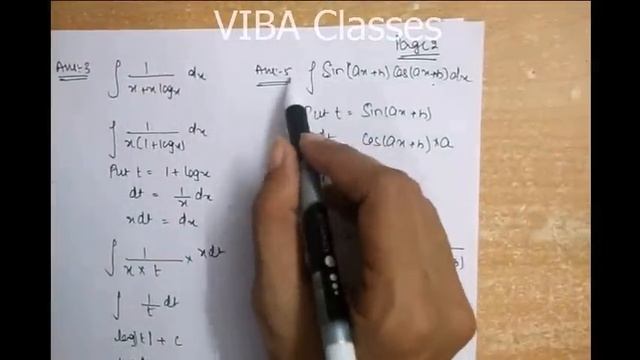 VIBA Classes
Page 2
Ans-3 ∫ 1/(x+x logx) dx
∫ 1/(x(1+logx)) dx
Put t = 1+logx
dt = 1/x dx
x dt = dx
∫ 1/(x×t) × x dt
∫ 1/t dt
log|t| + c
Ans-5 ∫ Sin(ax+b) Cos(ax+b) dx
Put t = Sin(ax+b)
dt Cos(ax+b)×a